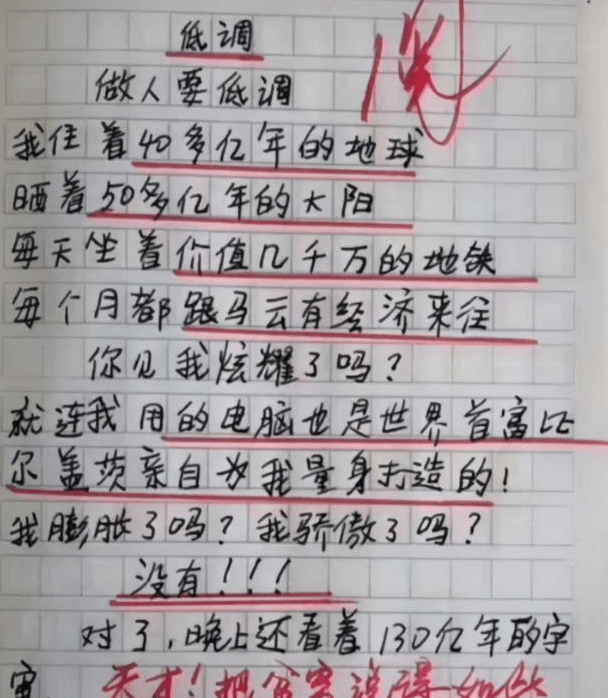 低调
做人要低调
我住着40多亿年的地球
晒着50多亿年的太阳
每天坐着价值几千万的地铁
每个月都跟马云有经济来往
你见我炫耀了吗？
就连我用的电脑也是世界首富比
尔盖茨亲自为我量身打造的！
我膨胀了吗？我骄傲了吗？
没有！！！
对了，晚上还看着130亿年的宇
宙 天才！把